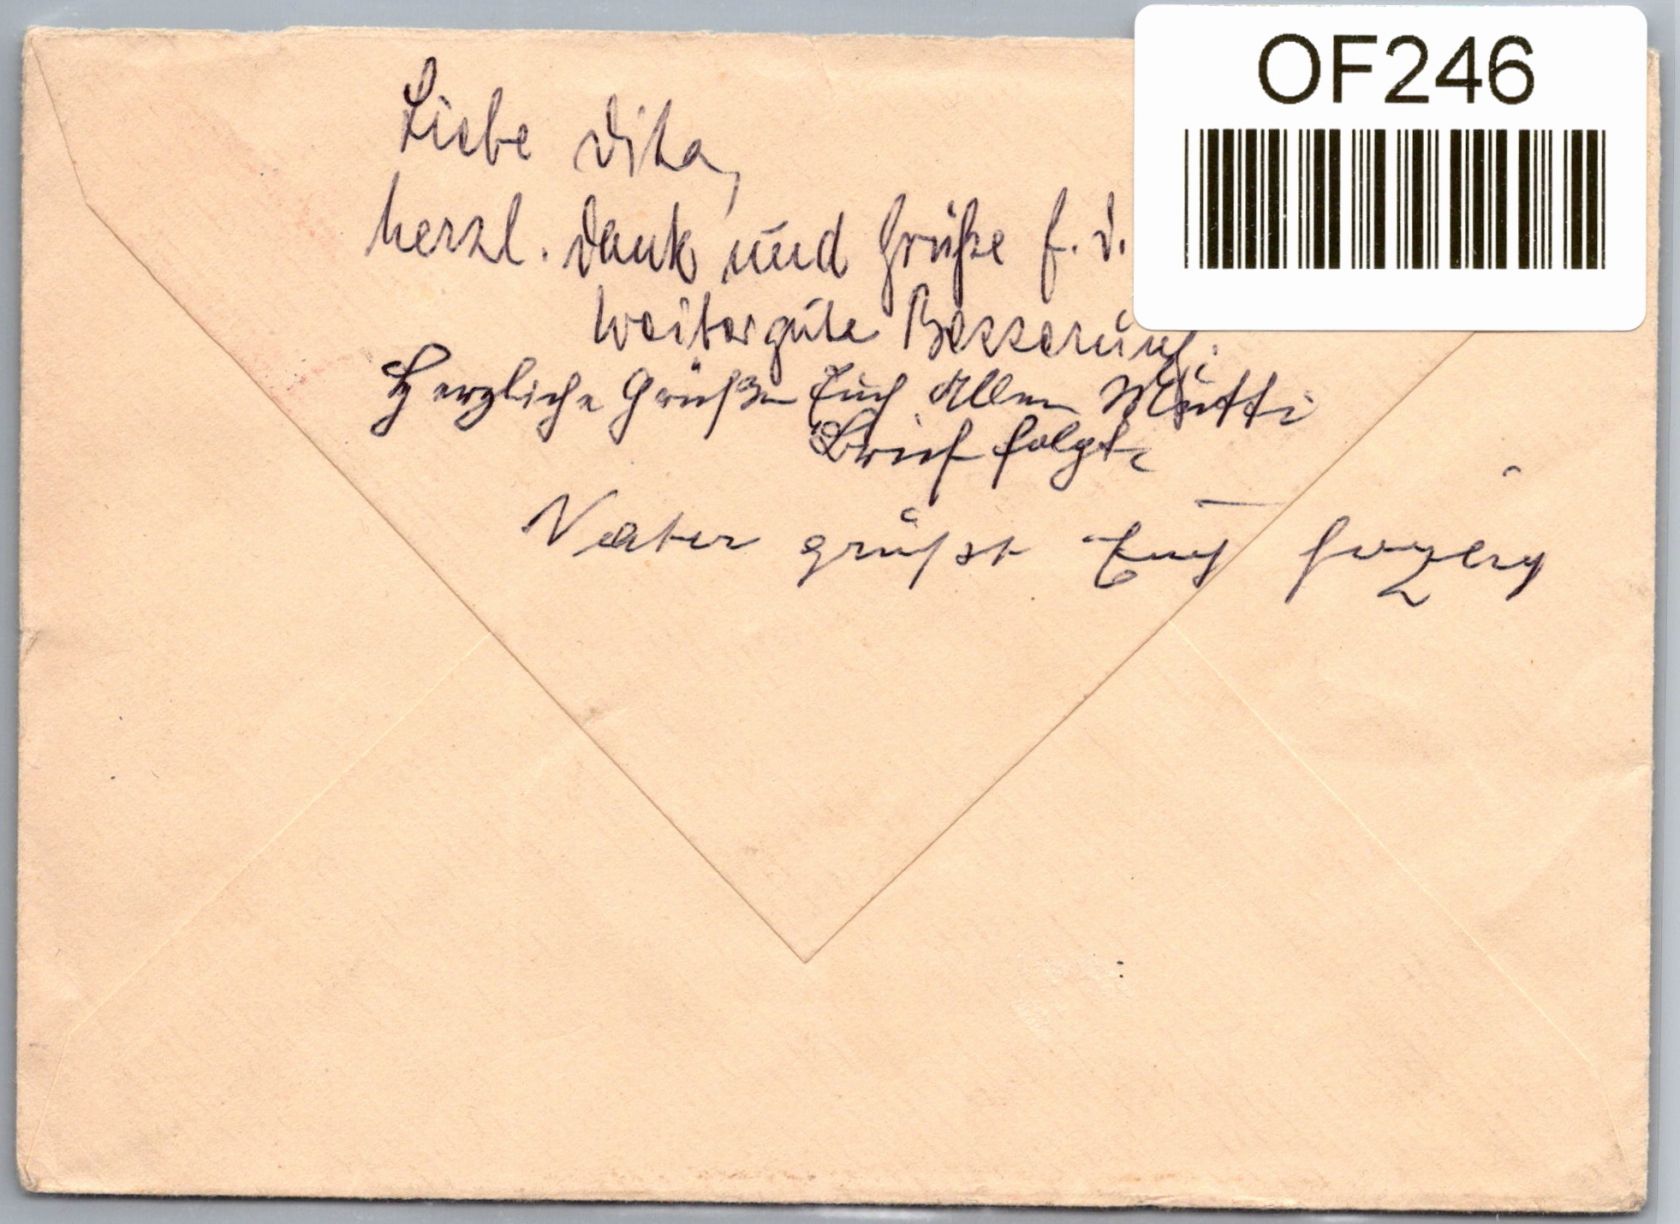 OF246
Liebe Dita,
herzl. Dank und Grüße f. d.
Weiter gute Besserung.
Herzliche Grüße Euch Allen Mutti
Brief folgt
Vater grüßt Euch herzlich